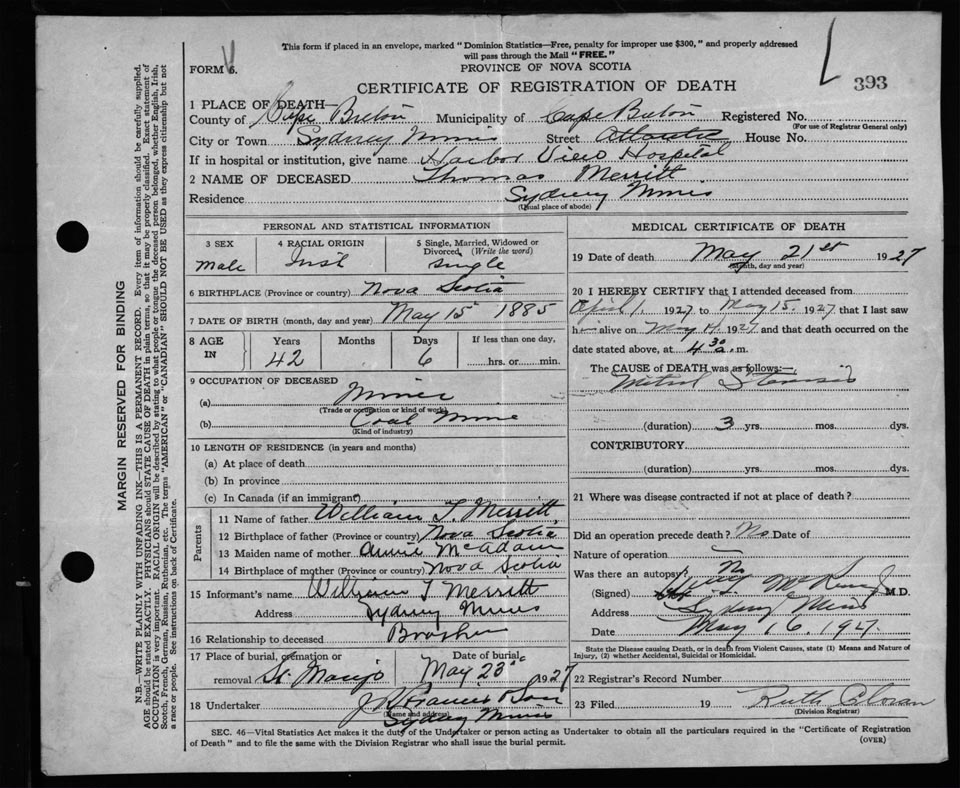 This form if placed in an envelope, marked "Dominion Statistics—Free, penalty for improper use $300," and properly addressed
will pass through the Mail "FREE."
FORM 6.
PROVINCE OF NOVA SCOTIA
CERTIFICATE OF REGISTRATION OF DEATH
393
1 PLACE OF DEATH—
County of Cape Breton Municipality of Cape Breton Registered No.
(For use of Registrar General only)
City or Town Sydney Mines Street Atlantic House No.
If in hospital or institution, give name Harbor View Hospital
2 NAME OF DECEASED Thomas Merritt
Residence Sydney Mines
(Usual place of abode)
PERSONAL AND STATISTICAL INFORMATION
3 SEX
Male
4 RACIAL ORIGIN
5 Single, Married, Widowed or
Divorced, (Write the word)
single
6 BIRTHPLACE (Province or country) Nova Scotia
7 DATE OF BIRTH (month, day and year) May 15 1885
8 AGE IN
Years Months Days
42 6
If less than one day,
hrs. or min.
9 OCCUPATION OF DECEASED
(a) Miner
(Trade or occupation or kind of work)
(b) Coal Mine
(Kind of industry)
10 LENGTH OF RESIDENCE (in years and months)
(a) At place of death
(b) In province
(c) In Canada (if an immigrant)
Parents
11 Name of father William T. Merritt
12 Birthplace of father (Province or country) Nova Scotia
13 Maiden name of mother Annie McAdam
14 Birthplace of mother (Province or country) Nova Scotia
15 Informant's name William T Merritt
Address Sydney Mines
16 Relationship to deceased Brother
17 Place of burial, cremation or
removal
Date of burial
May 23 1927
18 Undertaker
(Name and address)
Sydney Mines
MEDICAL CERTIFICATE OF DEATH
19 Date of death May 21st 1927
(month, day and year)
20 I HEREBY CERTIFY that I attended deceased from
April 1 1927 to May 15 1927 that I last saw
h alive on May 1927 and that death occurred on
date stated above, at 4 30 a.m.
The CAUSE of DEATH was as follows:—
Mitral Stenosis
(duration) 3 yrs. mos. dys.
CONTRIBUTORY
(duration) yrs. mos. dys.
21 Where was disease contracted if not at place of death?
Did an operation precede death? No Date of
Nature of operation
Was there an autopsy? No
(Signed) M.D.
Address Sydney Mines
Date May 16. 1927.
State the Disease causing Death, or in death from Violent Causes, state (1) Means and Nature of
Injury, (2) whether Accidental, Suicidal or Homicidal.
22 Registrar's Record Number
23 Filed 19 Ruth
(Division Registrar)
SEC. 46—Vital Statistics Act makes it the duty of the Undertaker or person acting as Undertaker to obtain all the particulars required in the "Certificate of Registration
of Death" and to file the same with the Division Registrar who shall issue the burial permit.
(OVER)
MARGIN RESERVED FOR BINDING
N.B.—WRITE PLAINLY WITH UNFADING INK—THIS IS A PERMANENT RECORD. Every item of information should be carefully supplied.
AGE should be stated EXACTLY. PHYSICIANS should STATE CAUSE OF DEATH in plain terms, so that it may be properly classified. Exact statement of
OCCUPATION is very important. RACIAL ORIGIN will be described by stating to what people or tongue the deceased person belonged, whether English, Irish,
Scotch, French, German, Russian, Ruthenian, etc. The terms "AMERICAN" or "CANADIAN" SHOULD NOT BE USED as they express citizenship but not
a race or people. See instructions on back of Certificate.